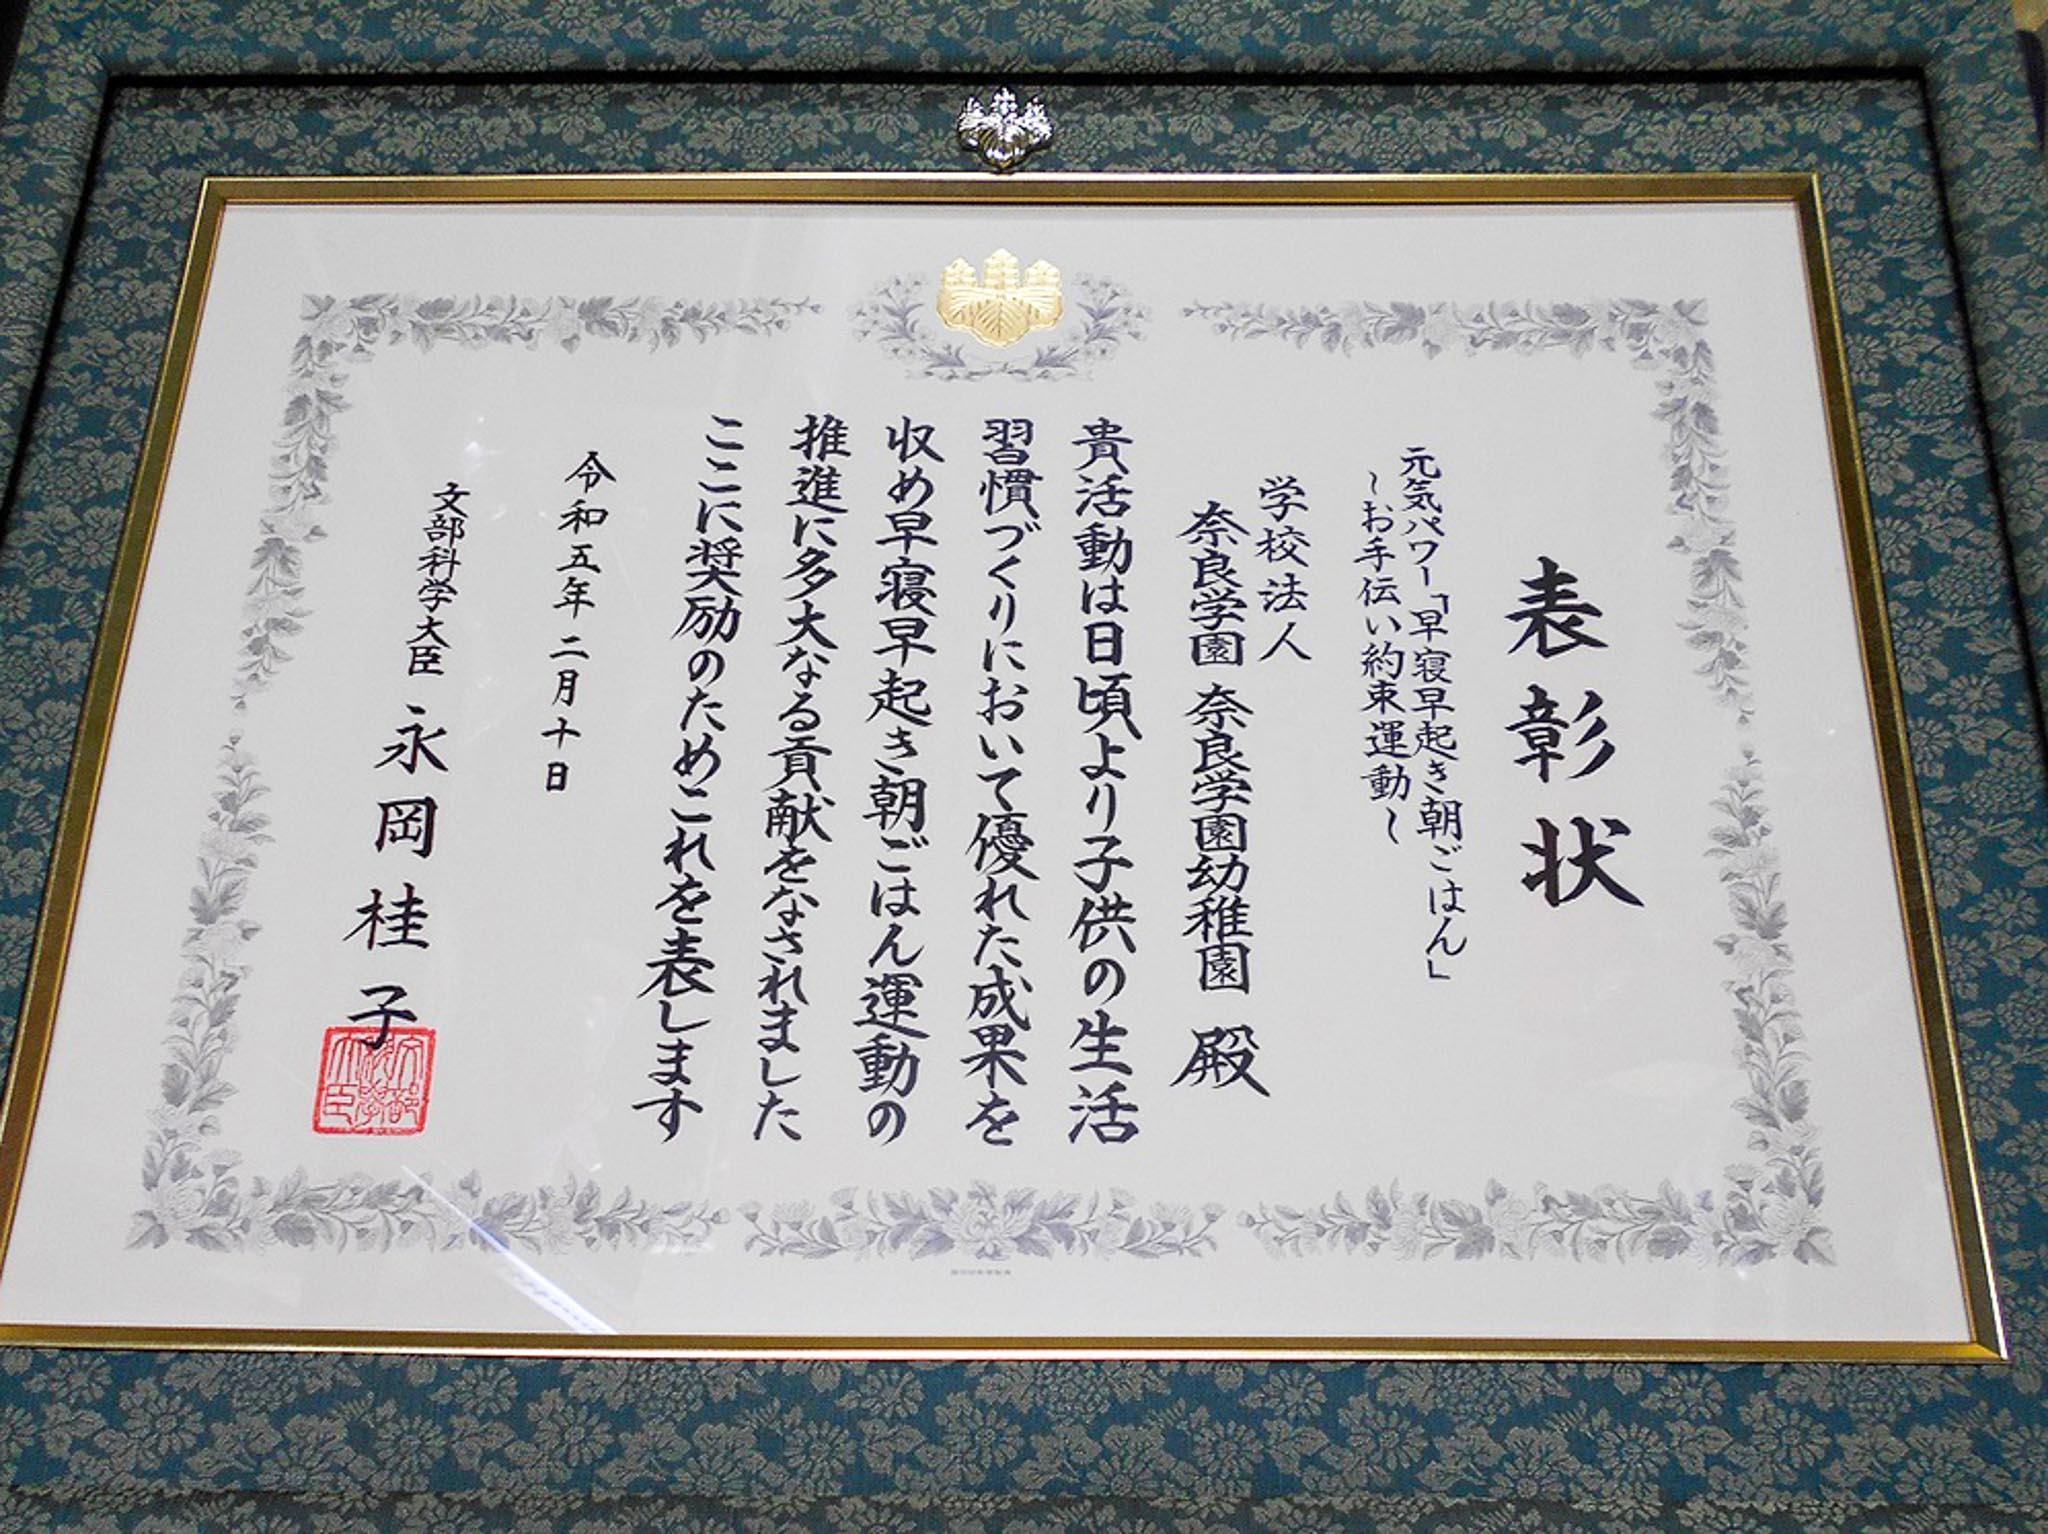 表彰状
元気パワー「早寝早起き朝ごはん」
～お手伝い約束運動～
学校法人
奈良学園 奈良学園幼稚園 殿
貴活動は日頃より子供の生活
習慣づくりにおいて優れた成果を
収め早寝早起き朝ごはん運動の
推進に多大なる貢献をなされました
ここに奨励のためこれを表します
令和五年二月十日
文部科学大臣 永岡桂子